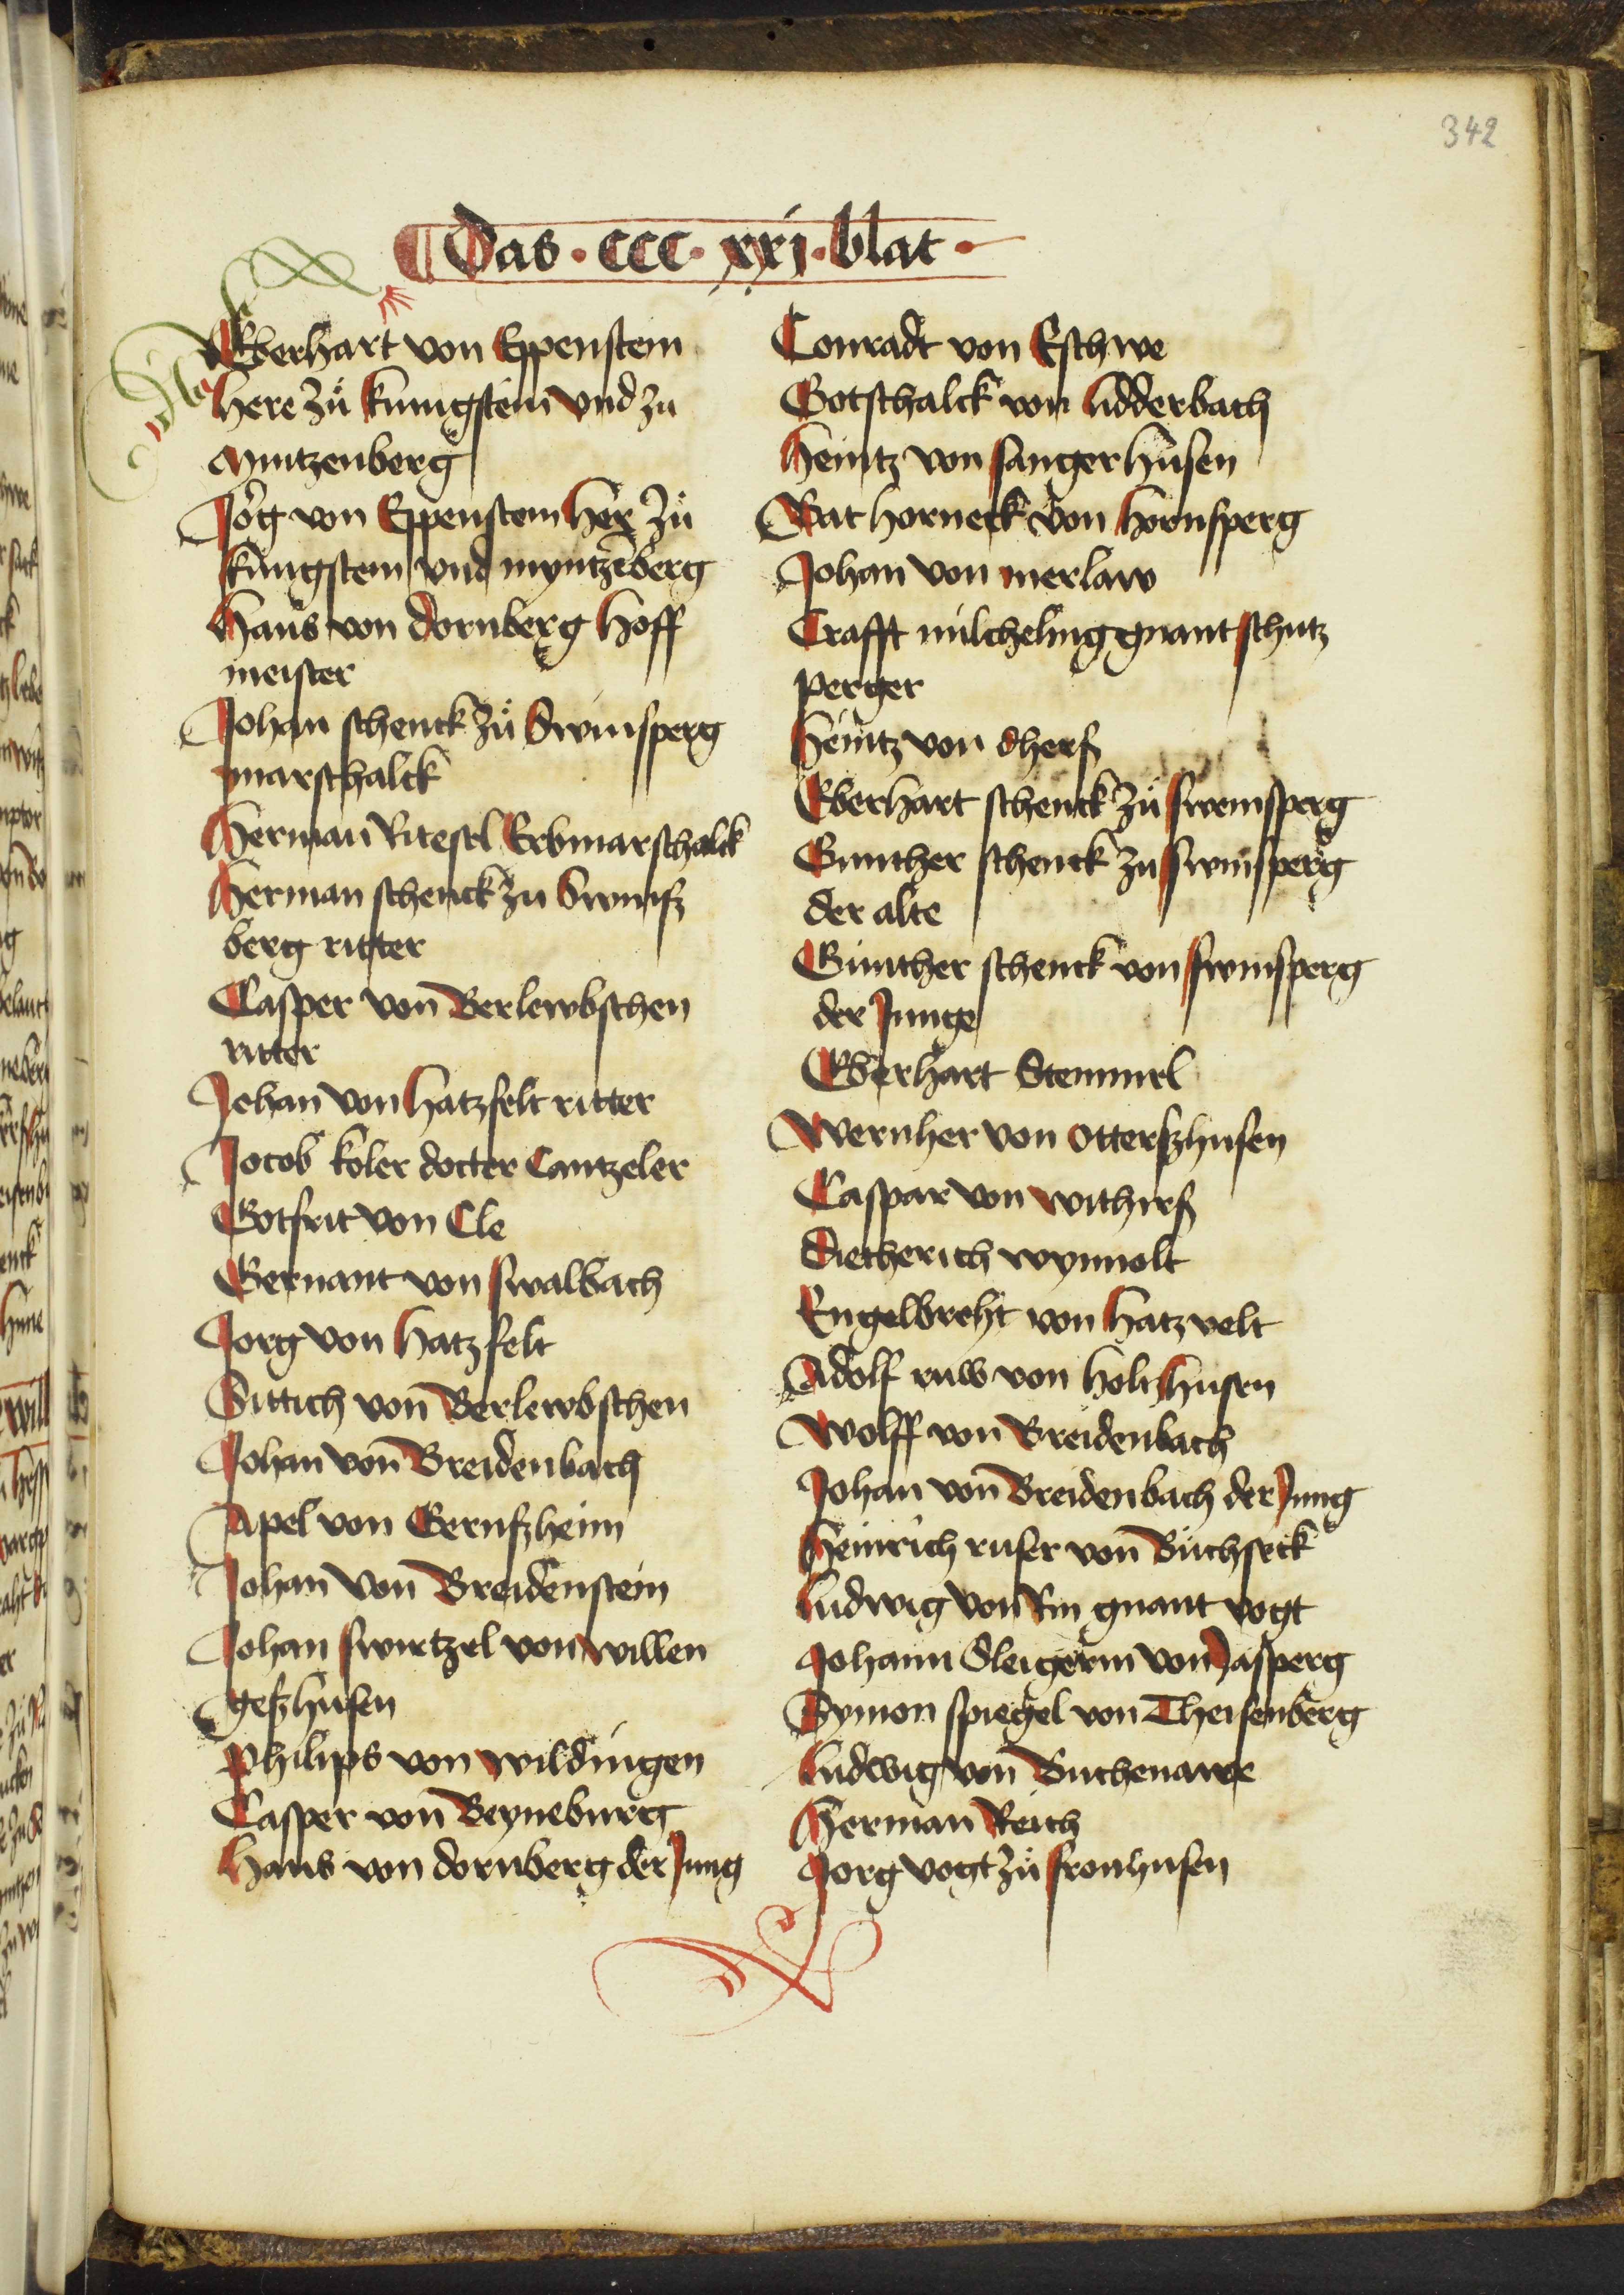 342
Das · ccc · xxj · blat ·
Eberhart von Eppenstein
here zů kunigstein vnd zu
Mintzenberg
Jorg von Eppenstein her zů
kungstein vnd myntzēberg
Hans von dornberg hoff
meister
Johan schenck zů Swinsperg
marschalck
Herman Ritesel Erbmarschalck
Herman schenck zu Swinsz
berg ritter
Casper von Berlewbschen
ritter
Johan von hatzfelt ritter
Jocob koler docter Cantzeler
Gotfrit von Cle
Gernant von swalbach
Jorg von hatzfelt
Sittich von Berlewbschen
Johan von Breidenbach
Apel von Gernszheim
Johan von Breidenstein
Johan swertzel von willen
geszhusen
Philips von wildungen
Casper von Beyneburg
Hans von dornberg der Jung
Conradt von Eschwe
Gotschalck von lidderbach
Heintz von sangerhusen
Bat horneck von hornsperg
Johan von merlaw
Crafft milcheling gnant schutz
perger
Heintz von dhers
Eberhart schenck zů sweinsperg
Gunther schenck zu swinsperg
der alte
Günther schenck von swinsperg
der Junge
Eberhart Stemmel
Wernher von Otterszhusen
Caspar von withirs
Dietherich wynnolt
Engelbreht von hatzvelt
Adolf ruw von holtzhusen
Wolff von Breidenbach
Johan von Breidenbach der Jung
Heinrich ruser von Buchseck
Ludwig von Rin gnant vogt
Johann Sleigerin von Jasperg
Symon spiegel von Theisenberg
Ludwig von Buchenawe
Herman Reich
Jorg vogt zů fronhusen